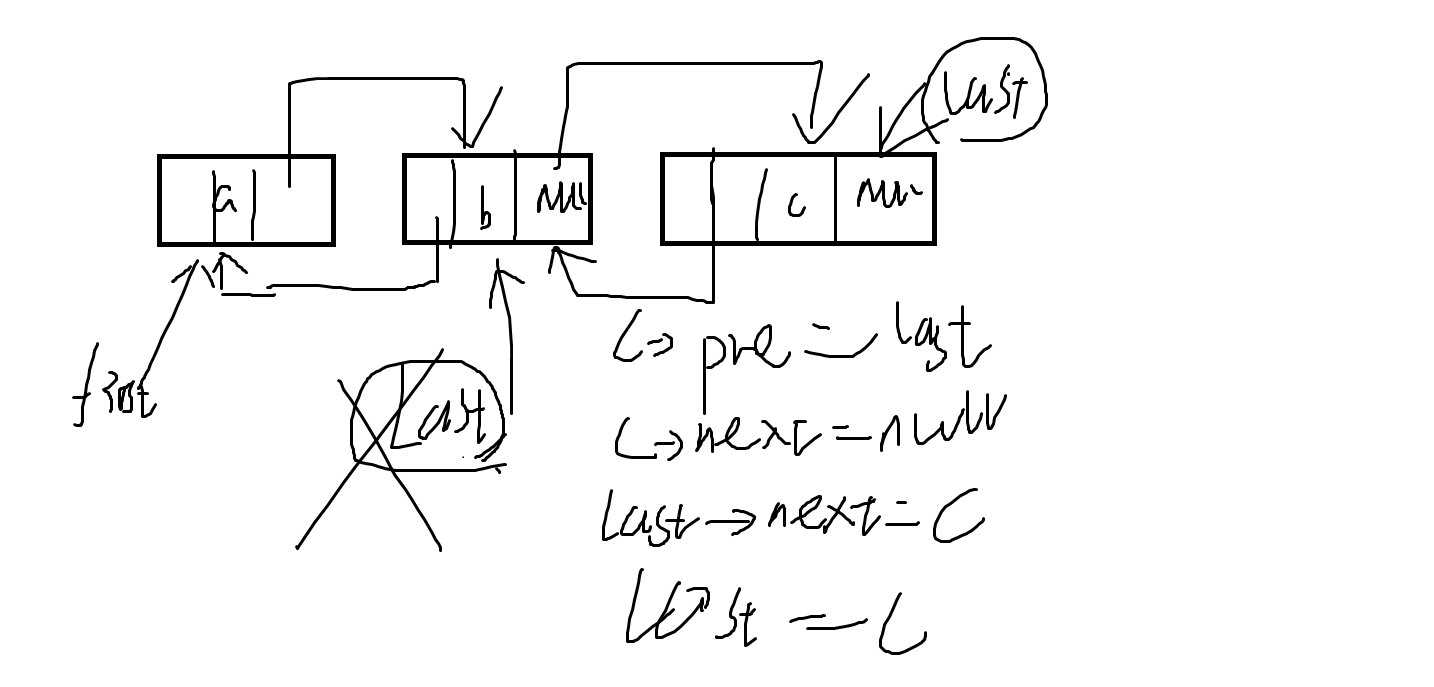 Last
a
b
null
c
null
first
Last
C→pre=last
C→next=null
last→next=C
last=C